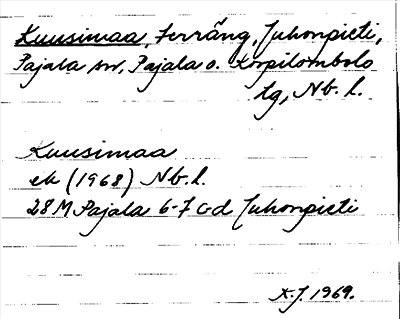 Kuusimaa, terräng, Juhonpieti,
Pajala sn, Pajala o. Korpilombolo
tg, Nb. l.
Kuusimaa
ek (1968) Nb. l.
28M Pajala 6-7 c-d Juhonpieti
K.J. 1969.